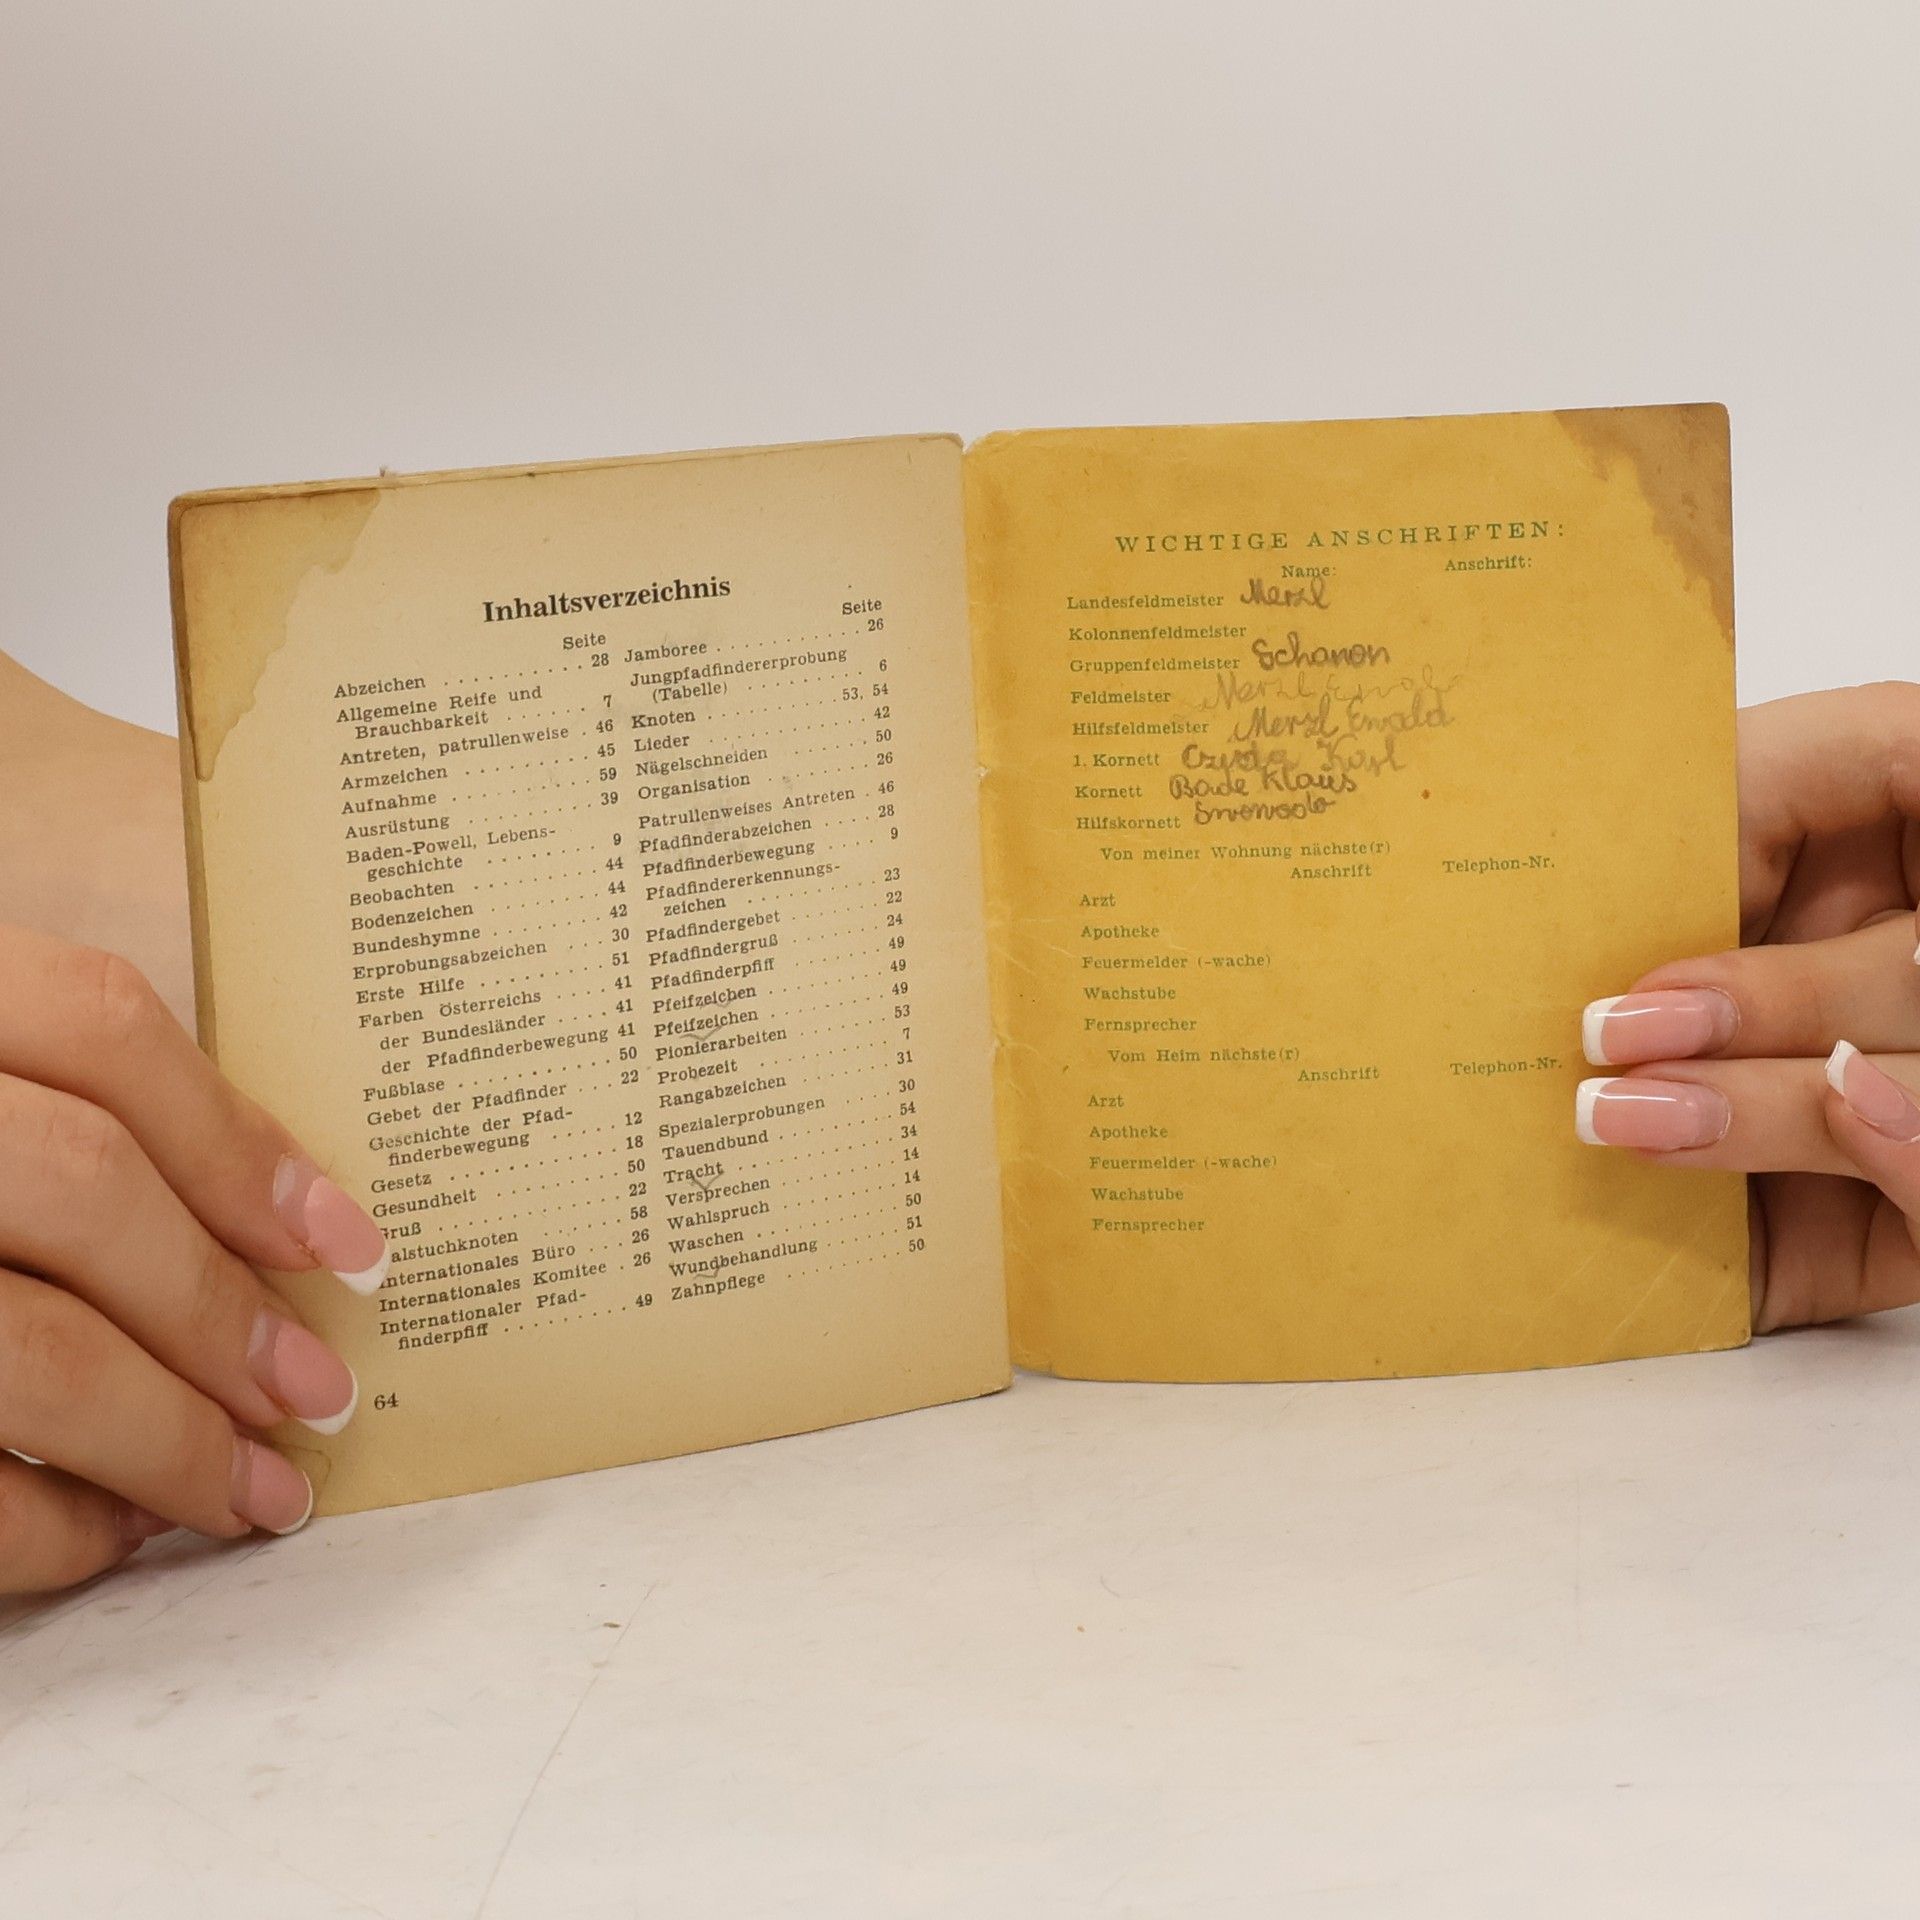 Inhaltsverzeichnis
Seite
Abzeichen . . . . . . . . . . 28
Allgemeine Reife und
Brauchbarkeit . . . . . . 7
Antreten, patrullenweise . 46
Armzeichen . . . . . . . . 45
Aufnahme . . . . . . . . . 59
Ausrüstung . . . . . . . . 39
Baden-Powell, Lebens-
geschichte . . . . . . . . 9
Beobachten . . . . . . . . 44
Bodenzeichen . . . . . . . 44
Bundeshymne . . . . . . . 42
Erprobungsabzeichen . . . 30
Erste Hilfe . . . . . . . . 51
Farben Österreichs . . . . 41
der Bundesländer . . . . 41
der Pfadfinderbewegung 41
Fußblase . . . . . . . . . . 50
Gebet der Pfadfinder . . . 22
Geschichte der Pfad-
finderbewegung . . . . . 12
Gesetz . . . . . . . . . . . 18
Gesundheit . . . . . . . . 50
Gruß . . . . . . . . . . . . 22
alstuchknoten . . . . . . 58
Internationales Büro . . . 26
Internationales Komitee . 26
Internationaler Pfad-
finderpfiff . . . . . . . . 49
Seite
Jamboree . . . . . . . . . . 26
Jungpfadfindererprobung
(Tabelle) . . . . . . . . 6
Knoten . . . . . . . . 53, 54
Lieder . . . . . . . . . . . 42
Nägelschneiden . . . . . . 50
Organisation . . . . . . . 26
Patrullenweises Antreten . 46
Pfadfinderabzeichen . . . . 28
Pfadfinderbewegung . . . . 9
Pfadfindererkennungs-
zeichen . . . . . . . . . 23
Pfadfindergebet . . . . . . 22
Pfadfindergruß . . . . . . 24
Pfadfinderpfiff . . . . . . 49
Pfeifzeichen . . . . . . . . 49
Pfeifzeichen . . . . . . . . 49
Pionierarbeiten . . . . . . 53
Probezeit . . . . . . . . . 7
Rangabzeichen . . . . . . 31
Spezialerprobungen . . . . 30
Tauendbund . . . . . . . . 54
Tracht . . . . . . . . . . . 34
Versprechen . . . . . . . . 14
Wahlspruch . . . . . . . . 14
Waschen . . . . . . . . . . 50
Wundbehandlung . . . . . 51
Zahnpflege . . . . . . . . 50
64
WICHTIGE ANSCHRIFTEN:
Name: Anschrift:
Landesfeldmeister Merzl
Kolonnenfeldmeister
Gruppenfeldmeister Schanon
Feldmeister Merzl Ewald
Hilfsfeldmeister Merzl Ewald
1. Kornett Karl
Kornett Bade Klaus
Hilfskornett
Von meiner Wohnung nächste(r)
Anschrift Telephon-Nr.
Arzt
Apotheke
Feuermelder (-wache)
Wachstube
Fernsprecher
Vom Heim nächste(r)
Anschrift Telephon-Nr.
Arzt
Apotheke
Feuermelder (-wache)
Wachstube
Fernsprecher